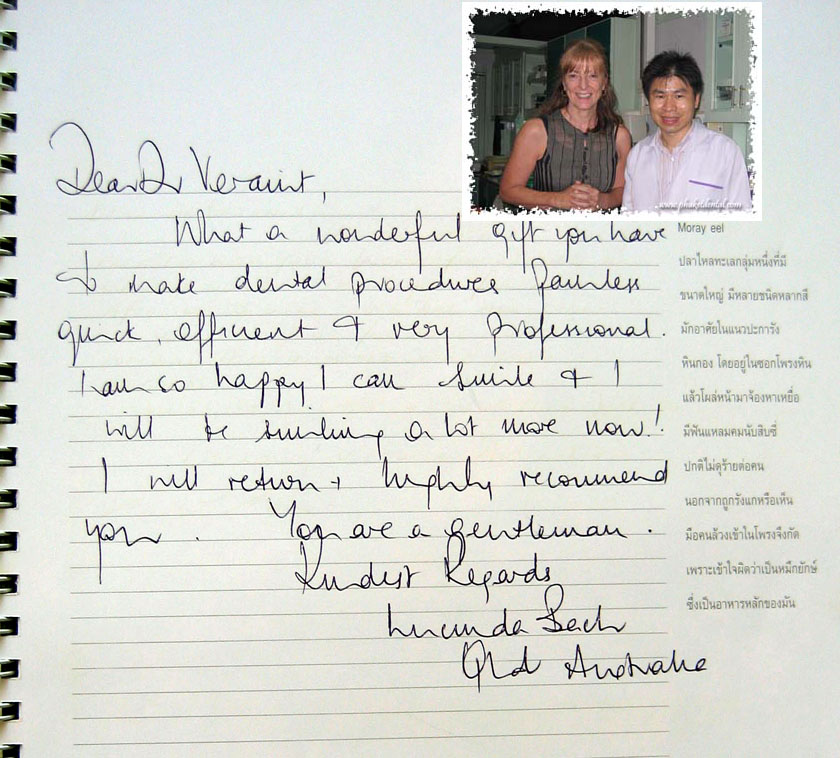 Dear Dr Veraint,
What a wonderful gift you have
to make dental procedures painless
quick, efficient & very professional.
I am so happy I can smile & I
will be smiling a lot more now!
I will return + highly recommend
you. You are a gentleman.
Kindest Regards
Lucinda Bach
Qld Australia
www.phuketdental.com
Moray eel
ปลาไหลทะเลกลุ่มหนึ่งที่มี
ขนาดใหญ่ มีหลายชนิดหลากสี
มักอาศัยในแนวปะการัง
หินกอง โดยอยู่ในซอกโพรงหิน
แล้วโผล่หน้ามาจ้องหาเหยื่อ
มีฟันแหลมคมนับสิบซี่
ปกติไม่ดุร้ายต่อคน
นอกจากถูกรังแกหรือเห็น
มือคนล้วงเข้าในโพรงจึงกัด
เพราะเข้าใจผิดว่าเป็นหมึกยักษ์
ซึ่งเป็นอาหารหลักของมัน